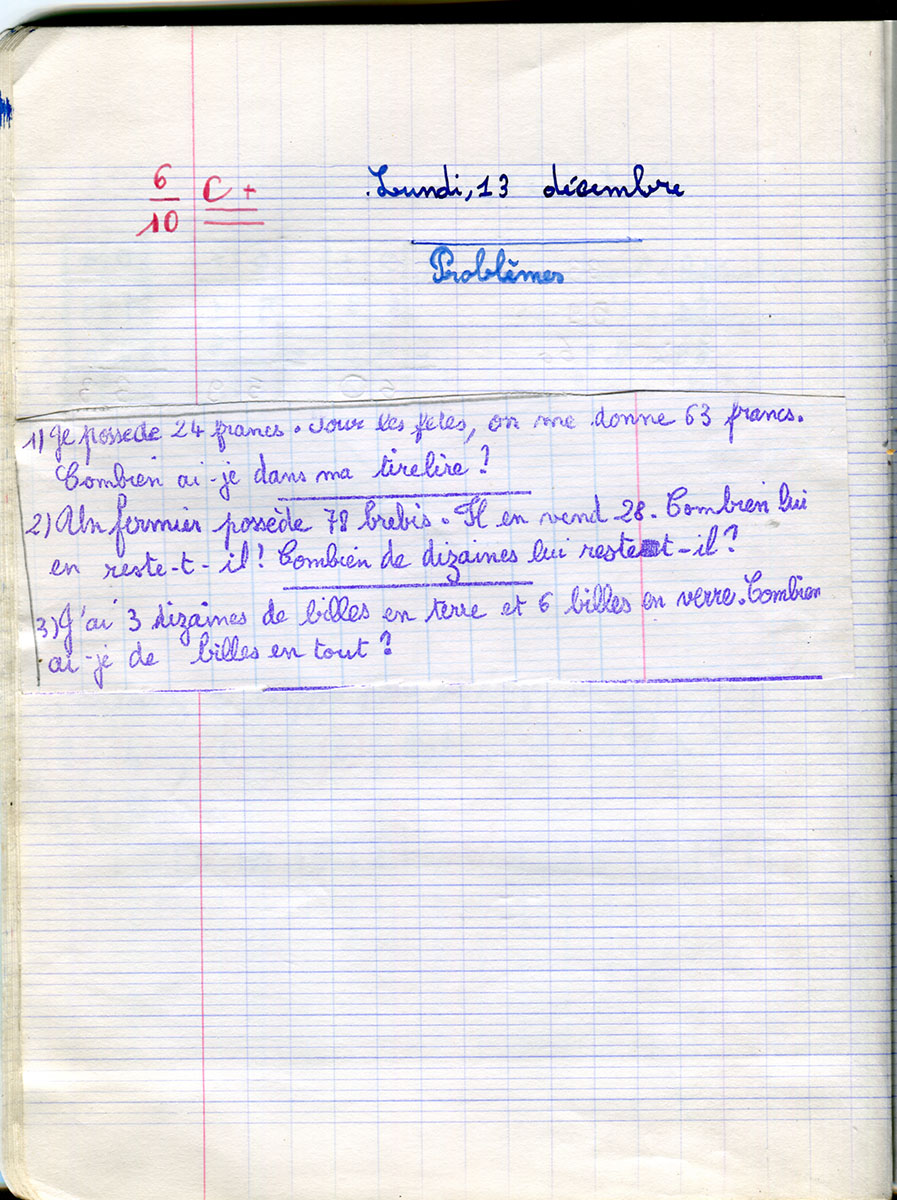 6/10 C+
Lundi, 13 décembre
Problèmes
1) Je possède 24 francs. Pour les fêtes, on me donne 63 francs.
Combien ai-je dans ma tirelire ?
2) Un fermier possède 78 brebis. Il en vend 28. Combien lui
en reste-t-il ! Combien de dizaines lui reste t-il ?
3) J'ai 3 dizaines de billes en terre et 6 billes en verre. Combien
ai-je de billes en tout ?